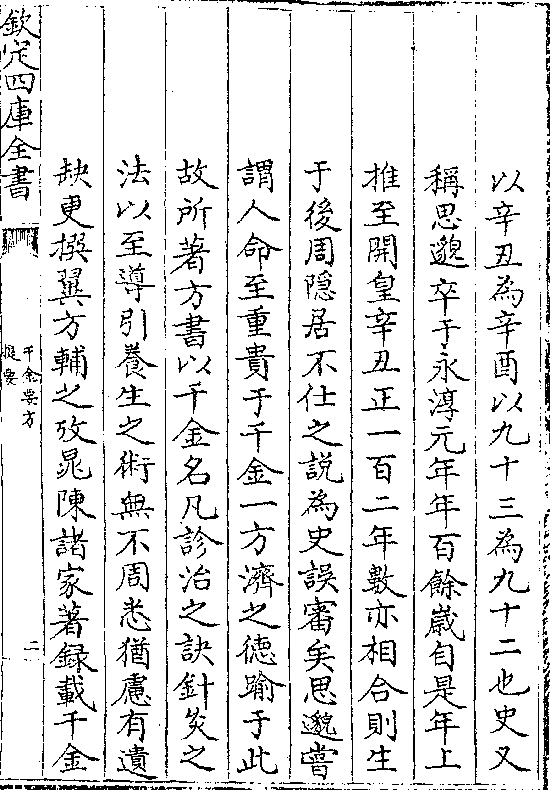 以辛丑為辛酉以九十三為九十二也史又
稱思邈卒于永淳元年年百餘嵗自是年上
推至開皇辛丑正一百二年數亦相合則生
于後周隠居不仕之説為史誤審矣思邈嘗
謂人命至重貴于千金一方濟之徳踰于此
故所著方書以千金名凡診治之訣針灸之
法以至導引養生之術無不周悉猶慮有遺
缺更撰翼方輔之攷晁陳諸家著録載千金
欽定四庫全書
千金要方
提要
二